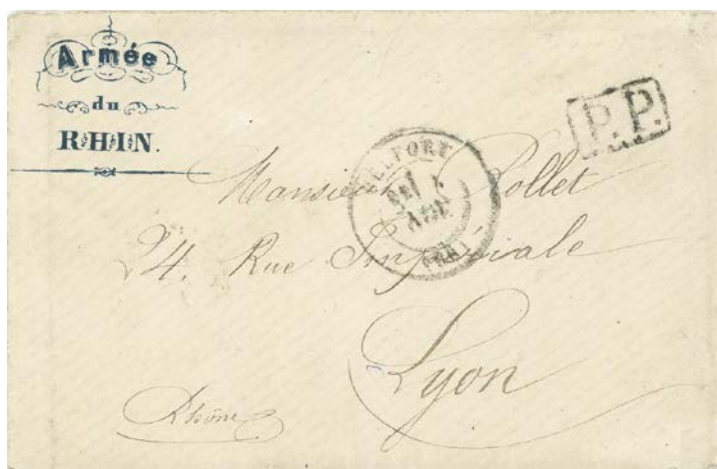 Armée
du
RHIN.
P.P.
BELFORT
Monsieur Pollet
24. Rue Impériale
Lyon
Rhône